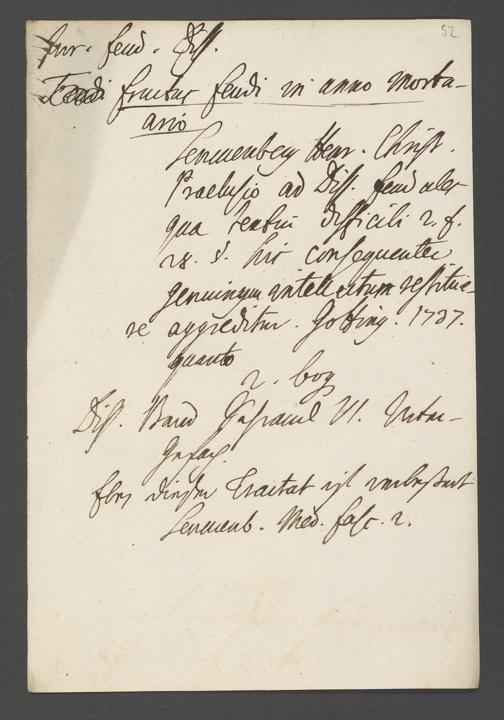 52
Jur. feud. Diss.
Feudi fructus feudi in anno morta-
ario
Senckenberg Henr. Christ.
Praelusio ad Diss. feudales
qua textui difficili 2. f.
28. §. his consequenter
genuinum intellectum restitue-
re aggreditur. Gotting. 1737.
quarto
2. bog
Diss. Band
VI. Unter-
Eben dieser Tractat ist verbessert
Senckenb. Med. fasc. 2.